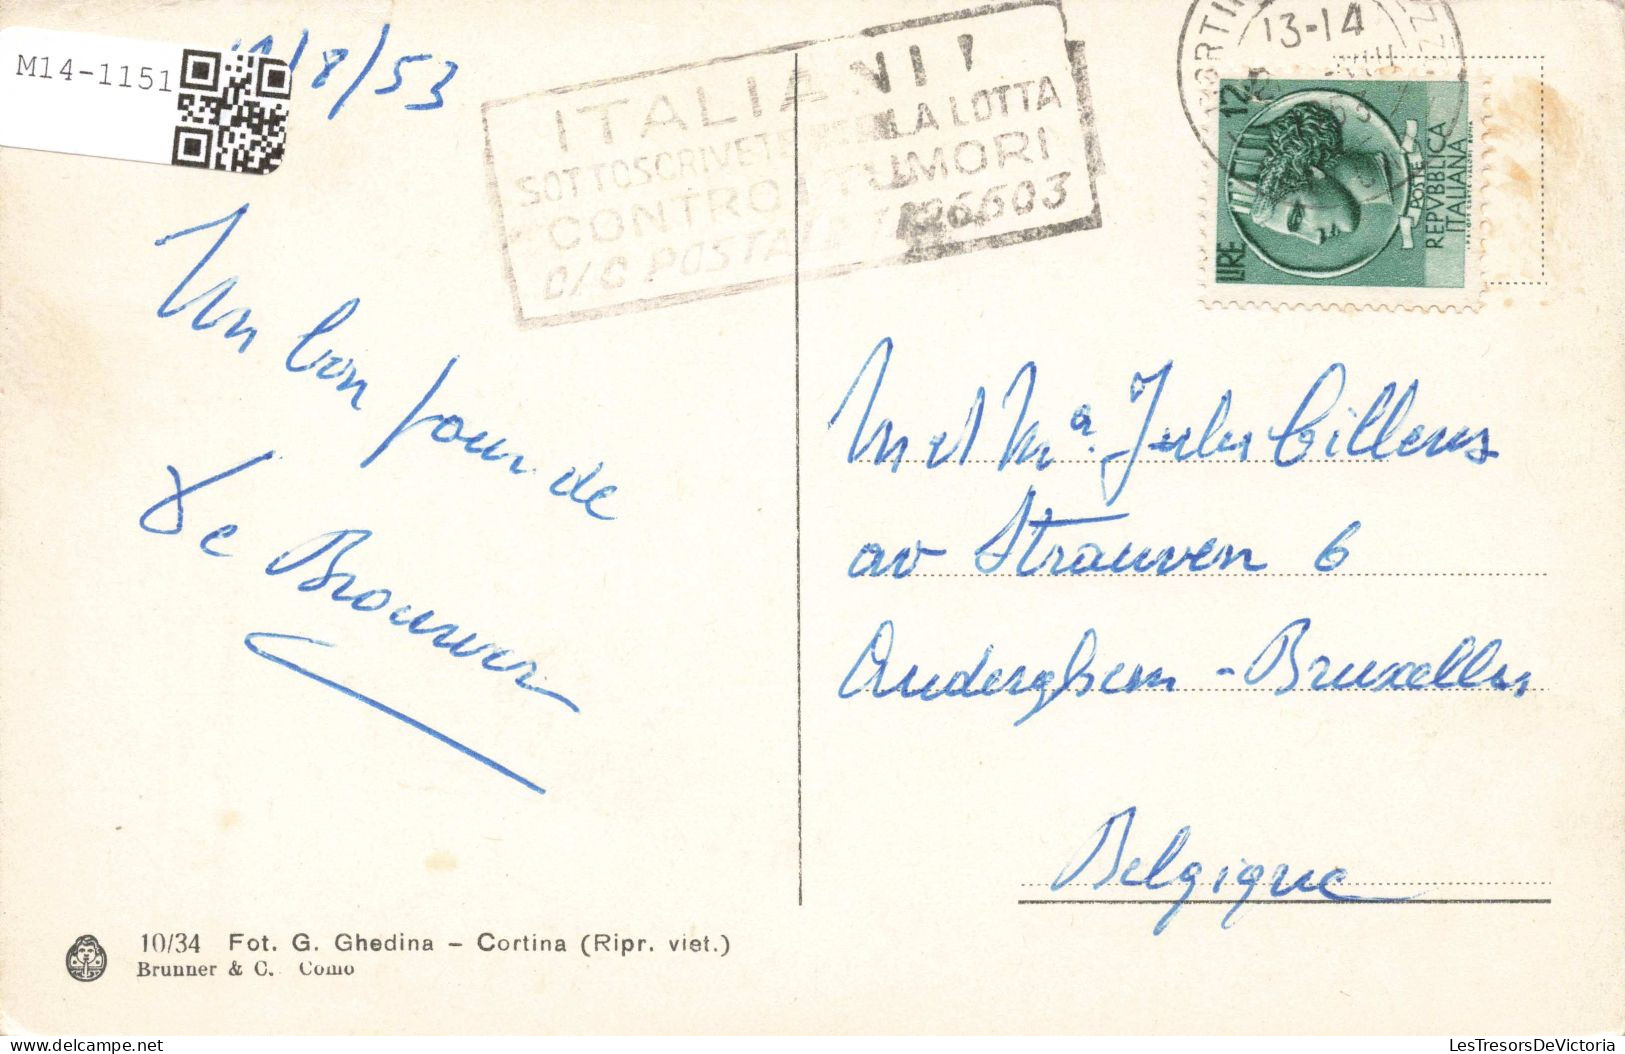 M14-1151
/8/53
ITALIANI!
SOTTOSCRIVETE PER LA LOTTA
CONTRO I TUMORI
C/C POSTALE 1/26603
13-14
12
LIRE
POSTE
REPVBBLICA
ITALIANA
Un bon jour de
De Brouwer
M et Mª Jules Cillens
av Strauven 6
Auderghem - Bruxelles
Belgique
10/34 Fot. G. Ghedina - Cortina (Ripr. viet.)
Brunner & C. Como
LesTresorsDeVictoria
delcampe.net